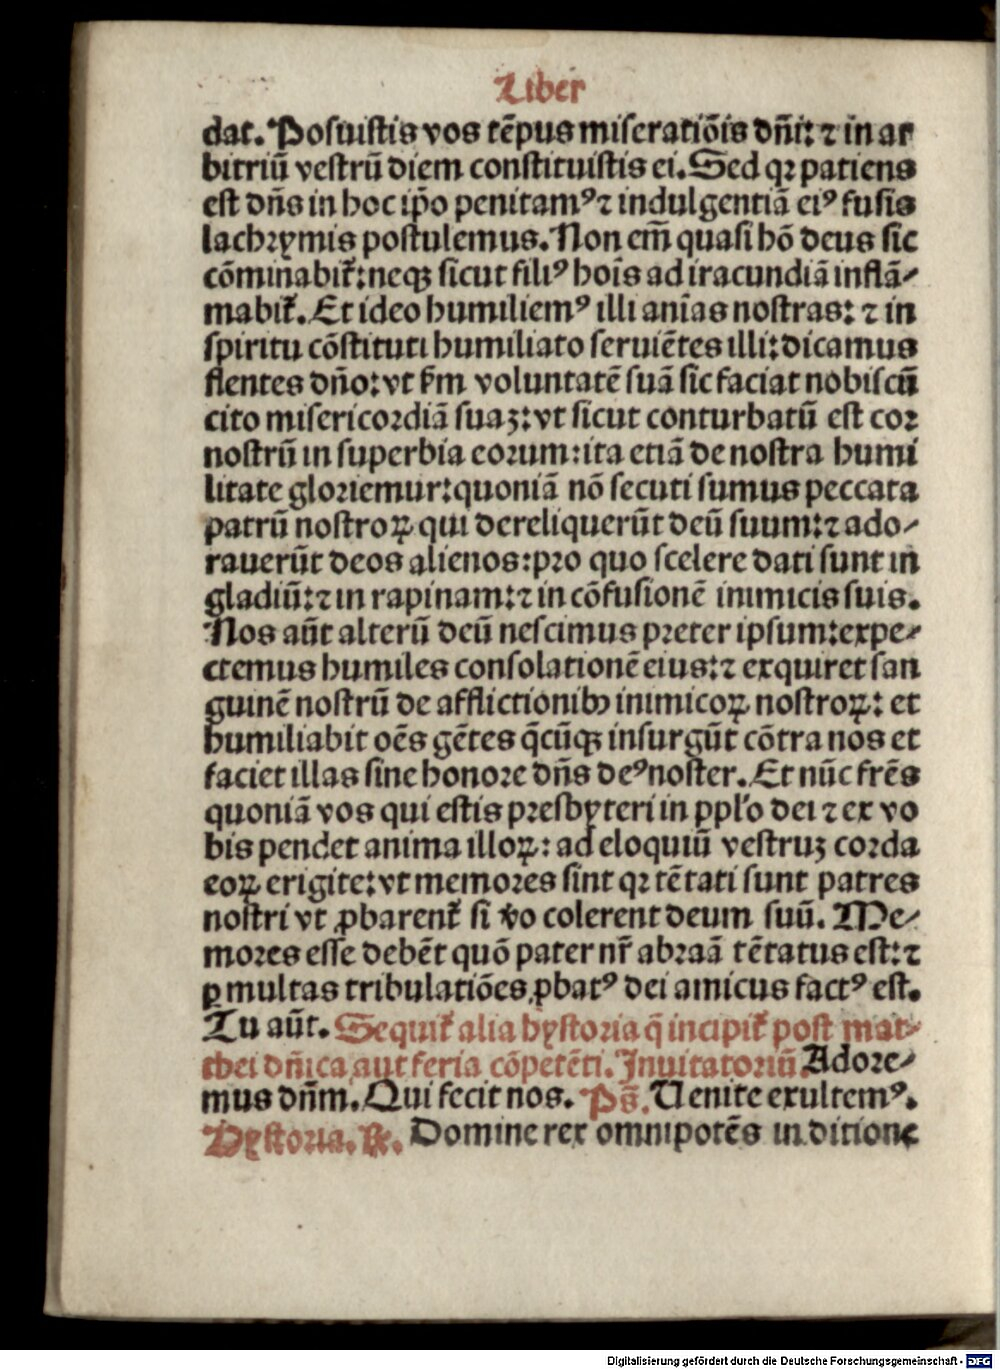 Liber
dat. Posuistis vos tēpus miseratiōis dñi: ⁊ in ar
bitriū vestrū diem constituistis ei. Sed qꝛ patiens
est dñs in hoc ip̄o penitamꝰ ⁊ indulgentiā eiꝰ fusis
lachrymis postulemus. Non em̄ quasi hō deus sic
cōminabit᷑: neqꝫ sicut filiꝰ hoīs ad iracundiā inflā⸗
mabit᷑. Et ideo humiliemꝰ illi anīas nostras: ⁊ in
spiritu cōstituti humiliato seruiētes illi: dicamus
flentes dño: vt ẜm voluntatē suā sic faciat nobiscū
cito misericordiā suaꝫ: vt sicut conturbatū est cor
nostrū in superbia eorum: ita etiā de nostra humi
litate gloriemur: quoniā nō secuti sumus peccata
patrū nostroꝝ qui dereliquerūt deū suum: ⁊ ado⸗
rauerūt deos alienos: pro quo scelere dati sunt in
gladiū: ⁊ in rapinam: ⁊ in cōfusionē inimicis suis.
Nos aūt alterū deū nescimus preter ipsum: expe⸗
ctemus humiles consolationē eius: ⁊ exquiret san
guinē nostrū de afflictionibꝫ inimicoꝝ nostroꝝ: et
humiliabit oēs gētes q̄cūqꝫ insurgūt cōtra nos et
faciet illas sine honore dñs deꝰ noster. Et nūc frēs
quoniā vos qui estis presbyteri in ppl'o dei ⁊ ex vo
bis pendet anima illoꝝ: ad eloquiū vestruꝫ corda
eoꝝ erigite: vt memores sint qꝛ tētati sunt patres
nostri vt ꝓbarent᷑ si v̄o colerent deum suū. Me⸗
mores esse debēt quō pater nr̄ abraā tētatus est: ⁊
ꝑ multas tribulatiōes ꝓbatꝰ dei amicus factꝰ est.
Tu aūt. Sequit᷑ alia hystoria q̄ incipit᷑ post mat⸗
thei dñica aut feria cōpetēti. Inuitatoriū. Adore⸗
mus dñm. Qui fecit nos. Ps̄. Uenite exultemꝰ.
Hystoria. ℟. Domine rex omnipotēs in ditione
Digitalisierung gefördert durch die Deutsche Forschungsgemeinschaft - DFG